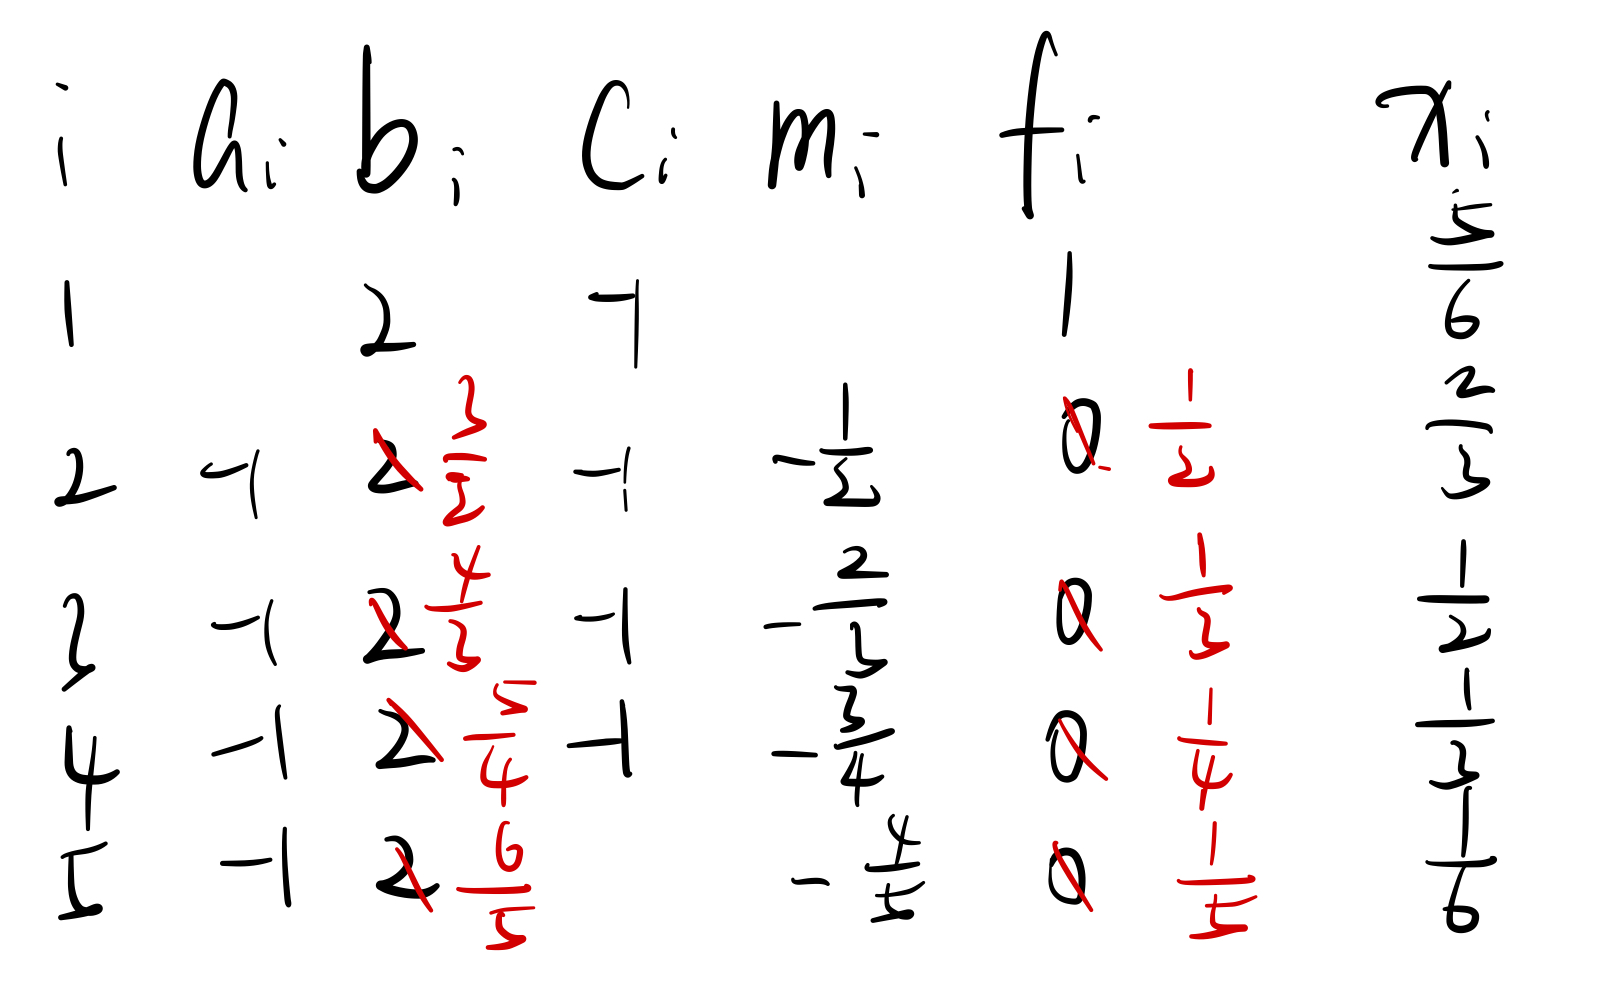 i aᵢ bᵢ cᵢ mᵢ fᵢ xᵢ
1 2 -1 1 5/6
2 -1 2 3/2 -1 -1/2 0 1/2 2/3
3 -1 2 4/3 -1 -2/3 0 1/3 1/2
4 -1 2 5/4 -1 -3/4 0 1/4 1/3
5 -1 2 6/5 -4/5 0 1/5 1/6